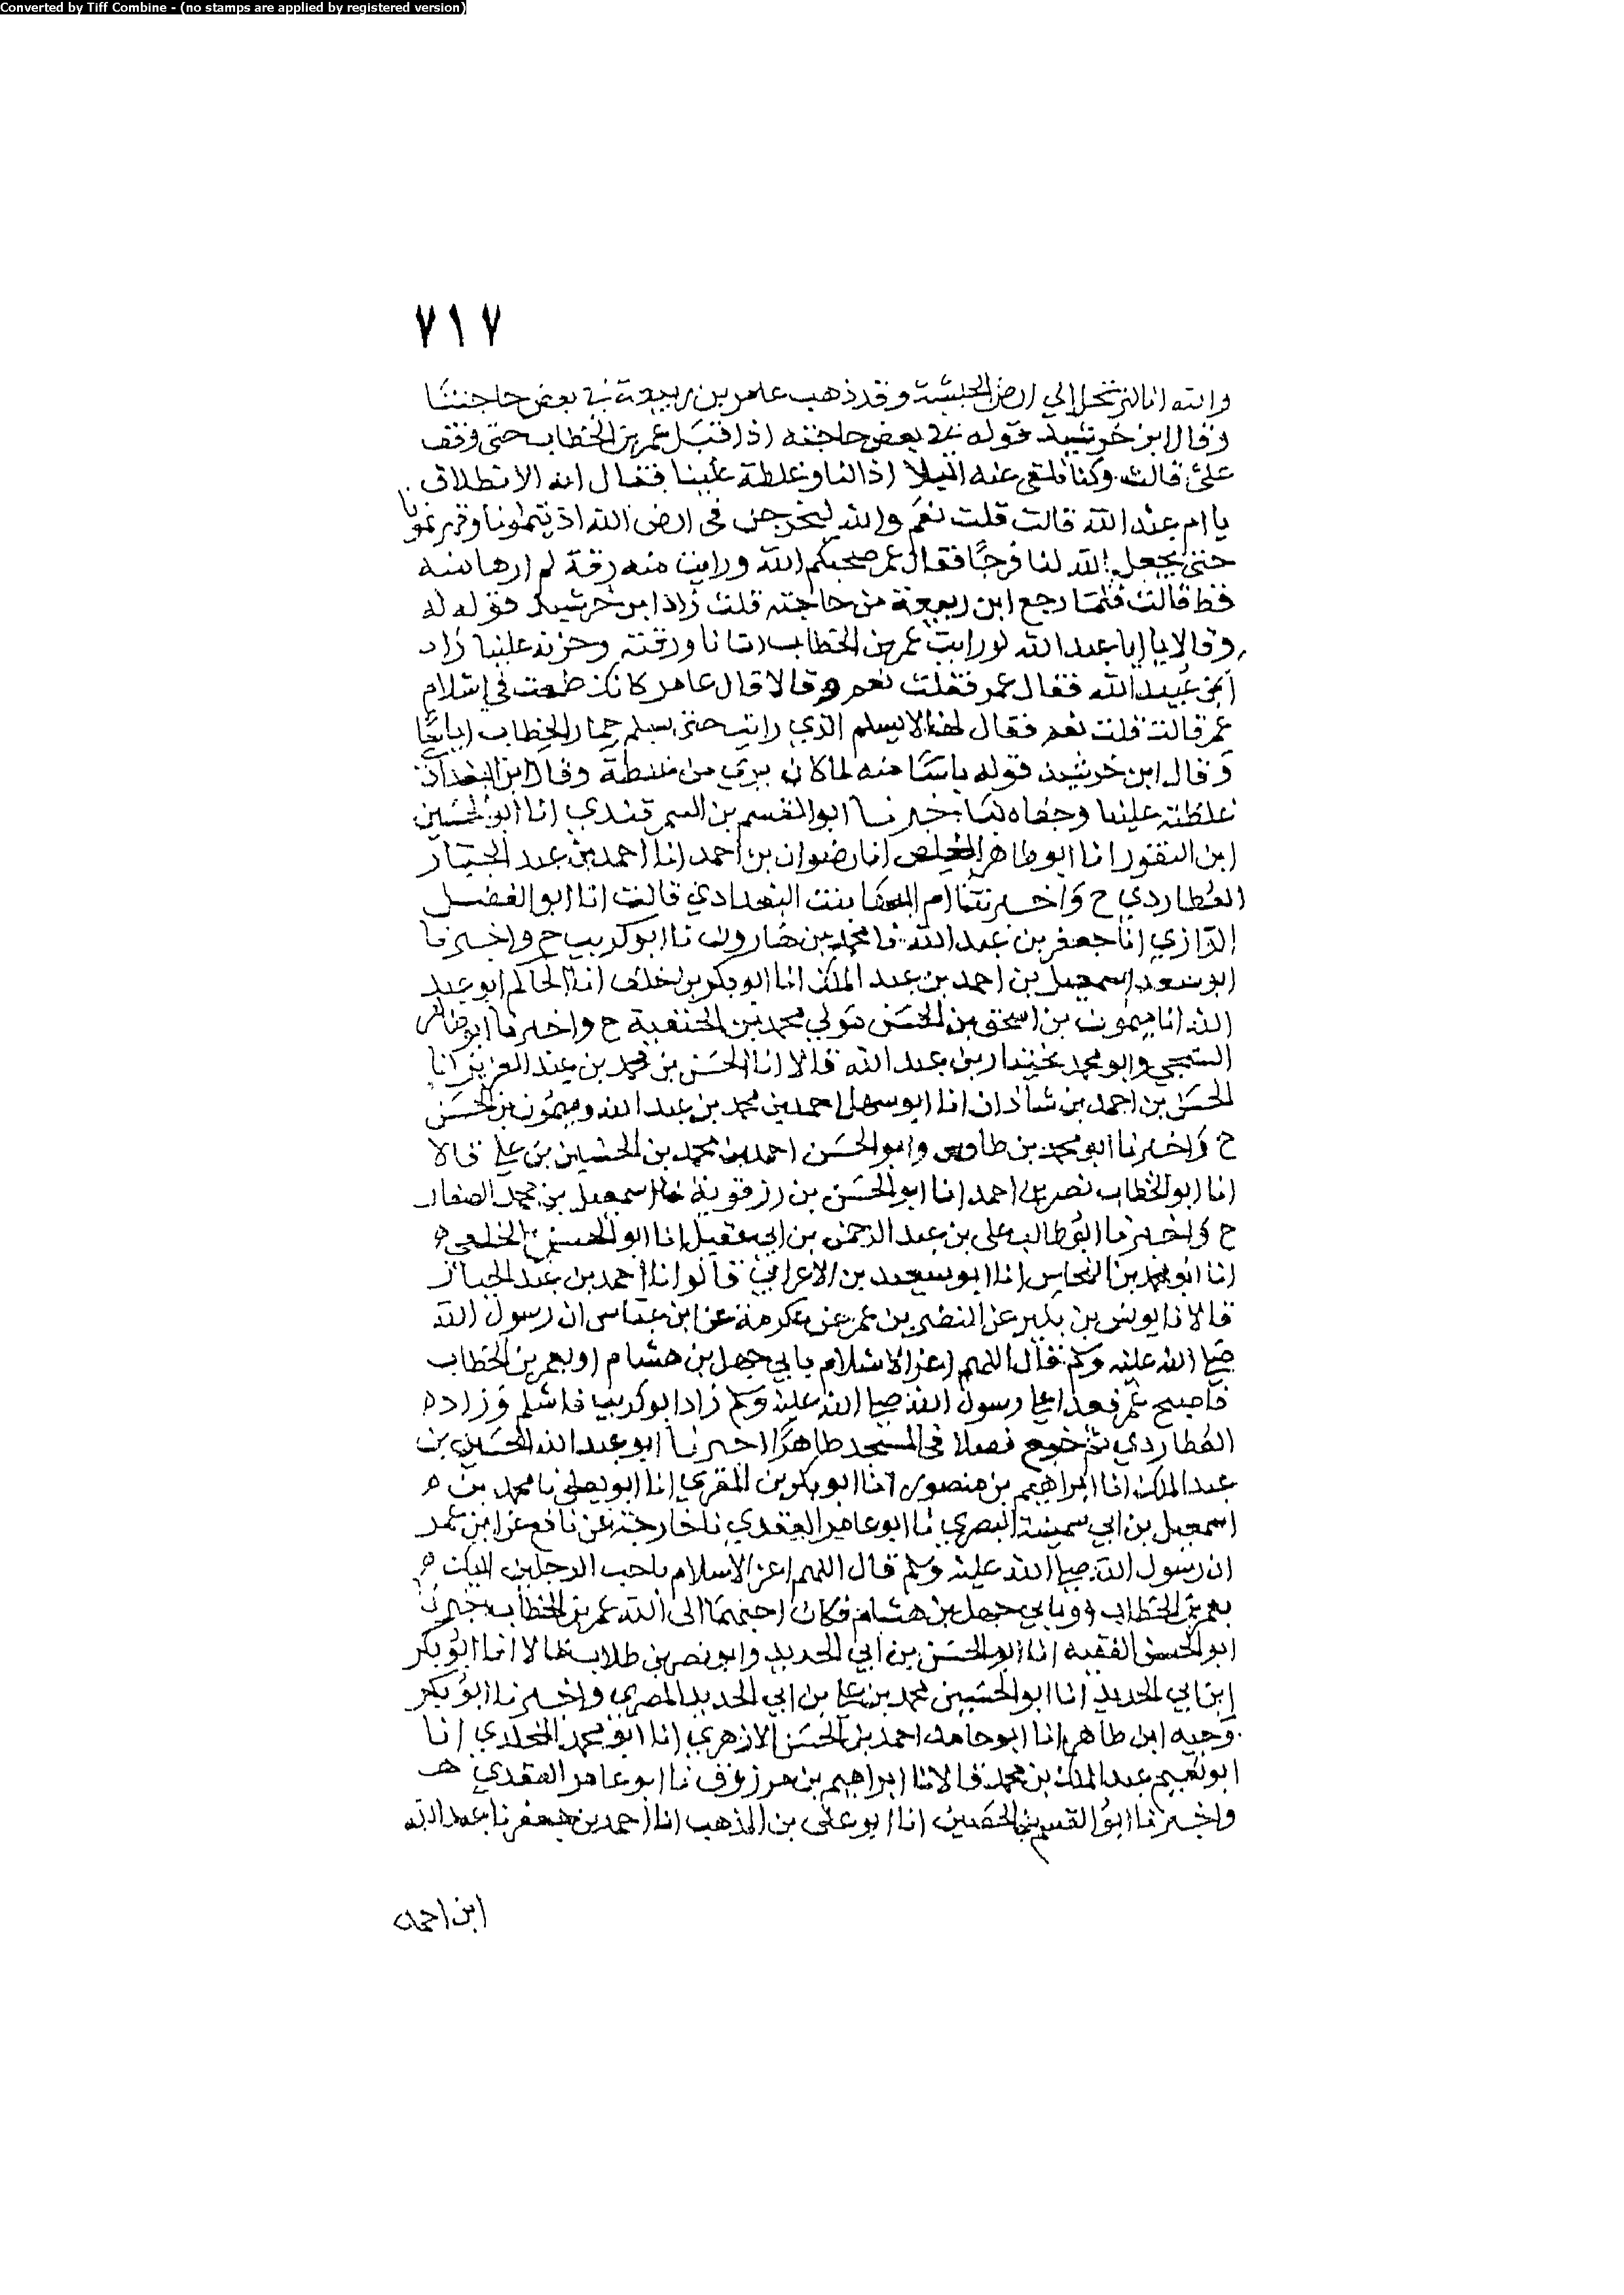 Converted by Tiff Combine - (no stamps are applied by registered version)
٧١٧
والله انا لنرتحل الي ارض الحبشة وقد ذهب عامر بن ربيعة في بعض حاجتنا
وقال ابن خرشيد قوله في بعض حاجته اذ اقبل عمر بن الخطاب حتى وقف
علي قالت وكنا نلقى منه البلا اذا لنا وغلظة علينا فقال انه الانطلاق
يا ام عبد الله قالت قلت نعم والله لنخرجن في ارض الله اذيتمونا وقهرتمونا
حتى يجعل الله لنا فرجا فقال عمر صحبكم الله ورايت منه رقة لم ارها منه
قط قالت فلما رجع ابن ربيعة من حاجته قلت زاد ابن خرشيد قوله له
وقالا يا ابا عبد الله لو رايت عمر بن الخطاب انانا ورقته وحزنه علينا زاد
ابن عبيد الله فقال عمر فقلت نعم وقالا قال عامر كانك طمعت في اسلام
عمر قالت قلت نعم فقال لهذا لا يسلم الذي رايت حتى يسلم حمار الخطاب اياسا
وقال ابن خرشيد قوله ياسا منه لما كان يرى من غلظة وقال ابن البغدادي
غلظته علينا وجفاه لنا اخبرنا ابو القسم بن السمرقندي انا ابو الحسين
ابن النقور انا ابو طاهر المخلص انا رضوان بن احمد انا احمد بن عبد الجبار
العطاردي ح واخبرتنا ام البها بنت البغدادي قالت انا ابو الفضل
الرازي انا جعفر بن عبد الله نا محمد بن هارون نا ابو كريب ح واخبرنا
ابو سعد اسمعيل بن احمد بن عبد الملك انا ابو بكر بن خلف انا الحاكم ابو عبد
الله انا ميمون بن اسحق بن الحسن مولي محمد بن الحنفية ح واخبرنا ابو طاهر
السنجي وابو محمد بختيار بن عبد الله قالا انا الحسن بن محمد بن عبد العزيز انا
الحسن بن احمد بن شاذان انا ابو سهل احمد بن محمد بن عبد الله وميمون بن الحسن
ح واخبرنا ابو محمد بن طاوس وابو الحسن احمد بن محمد بن الحسين بن علي قالا
انا ابو الخطاب نصر بن احمد انا ابو الحسن بن رزقوية نا اسمعيل بن محمد الصفار
ح واخبرنا ابو طالب علي بن عبد الرحمن بن ابي عقيل انا ابو الحسن الخلعي
انا ابو محمد بن النحاس انا ابو سعيد بن الاعرابي قالوا انا احمد بن عبد الجبار
قالا نا يونس بن بكير عن النضر بن عمر عن عكرمة عن ابن عباس ان رسول الله
صلى الله عليه وسلم قال اللهم اعز الاسلام بابي جهل بن هشام او بعمر بن الخطاب
فاصبح عمر فغدا علي رسول الله صلى الله عليه وسلم زاد ابو كريب فاسلم وزاد
العطاردي ثم خرج فصلا في المسجد ظاهرا اخبرنا ابو عبد الله الحسين بن
عبد الملك انا ابراهيم بن منصور انا ابو بكر بن المقري انا ابو يعلى نا محمد بن
اسمعيل بن ابي سمينة البصري نا ابو عامر العقدي نا خارجة عن نافع عن ابن عمر
ان رسول الله صلى الله عليه وسلم قال اللهم اعز الاسلام باحب الرجلين اليك
بعمر بن الخطاب او بابي جهل بن هشام فكان احبهما الى الله عمر بن الخطاب اخبرنا
ابو الحسن الفقيه انا ابو الحسن بن ابي الحديد وابو نصر بن طلاب قالا انا ابو بكر
ابن ابي الحديد انا ابو الحسين محمد بن علي بن ابي الحديد المصري واخبرنا ابو بكر
وجيه ابن طاهر انا ابو حامد احمد بن الحسن الازهري انا ابو محمد المخلدي انا
ابو نعيم عبد الملك بن محمد قالا نا ابراهيم بن مرزوق نا ابو عامر العقدي
واخبرنا ابو القسم بن الحصين انا ابو علي بن المذهب انا احمد بن جعفر نا عبد الله
ابن احمد